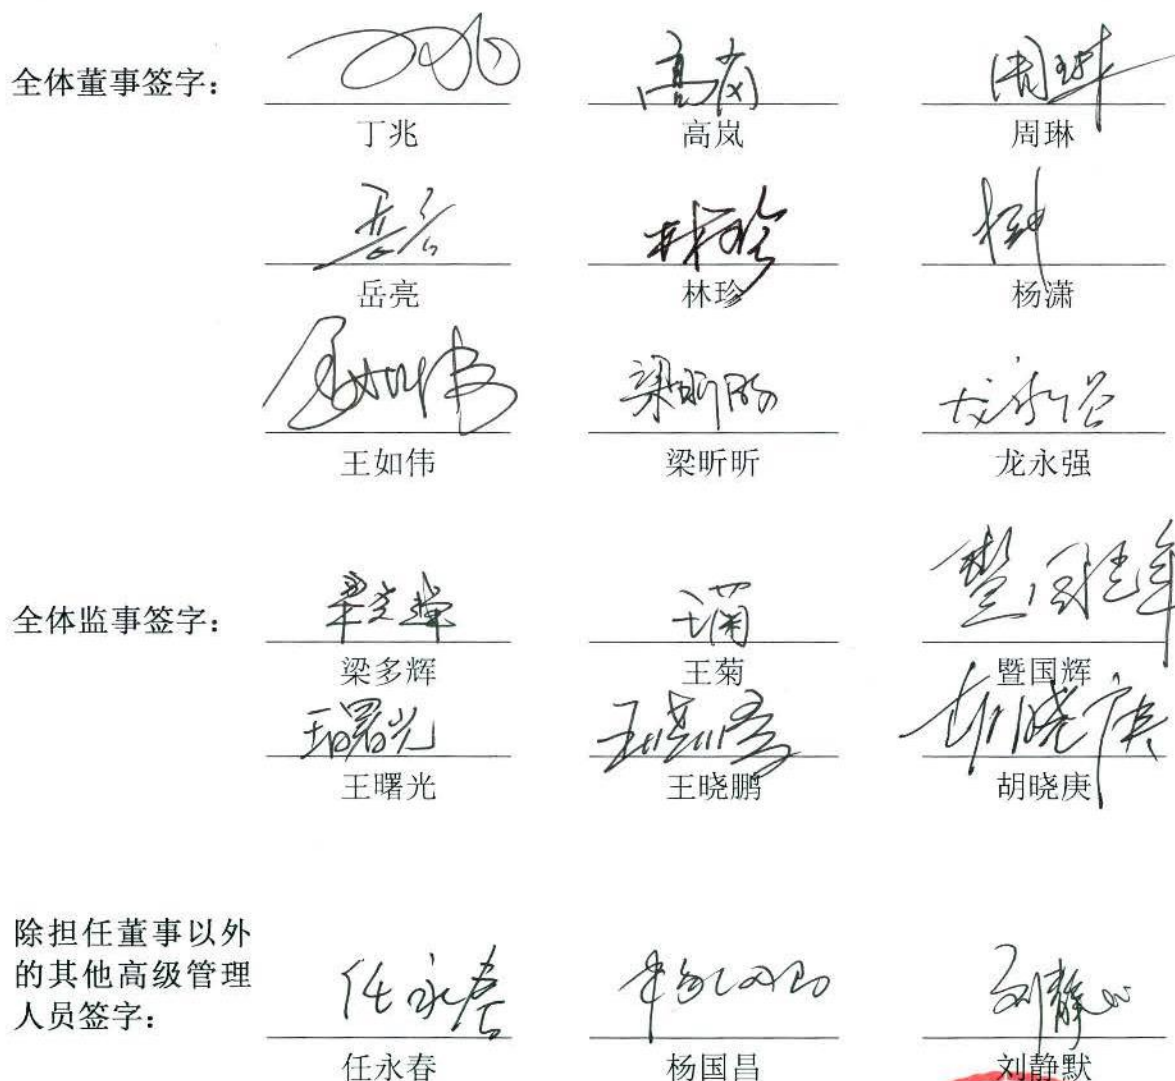 全体董事签字：
丁兆 高岚 周琳
岳亮 林珍 杨潇
王如伟 梁昕昕 龙永强
全体监事签字：
梁多辉 王菊 暨国辉
王曙光 王晓鹏 胡晓庚
除担任董事以外
的其他高级管理
人员签字：
任永春 杨国昌 刘静默